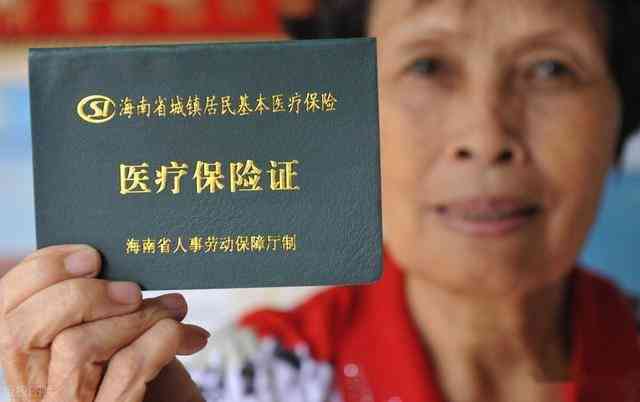 SI 海南省城镇居民基本医疗保险
医疗保险证
海南省人事劳动保障厅制